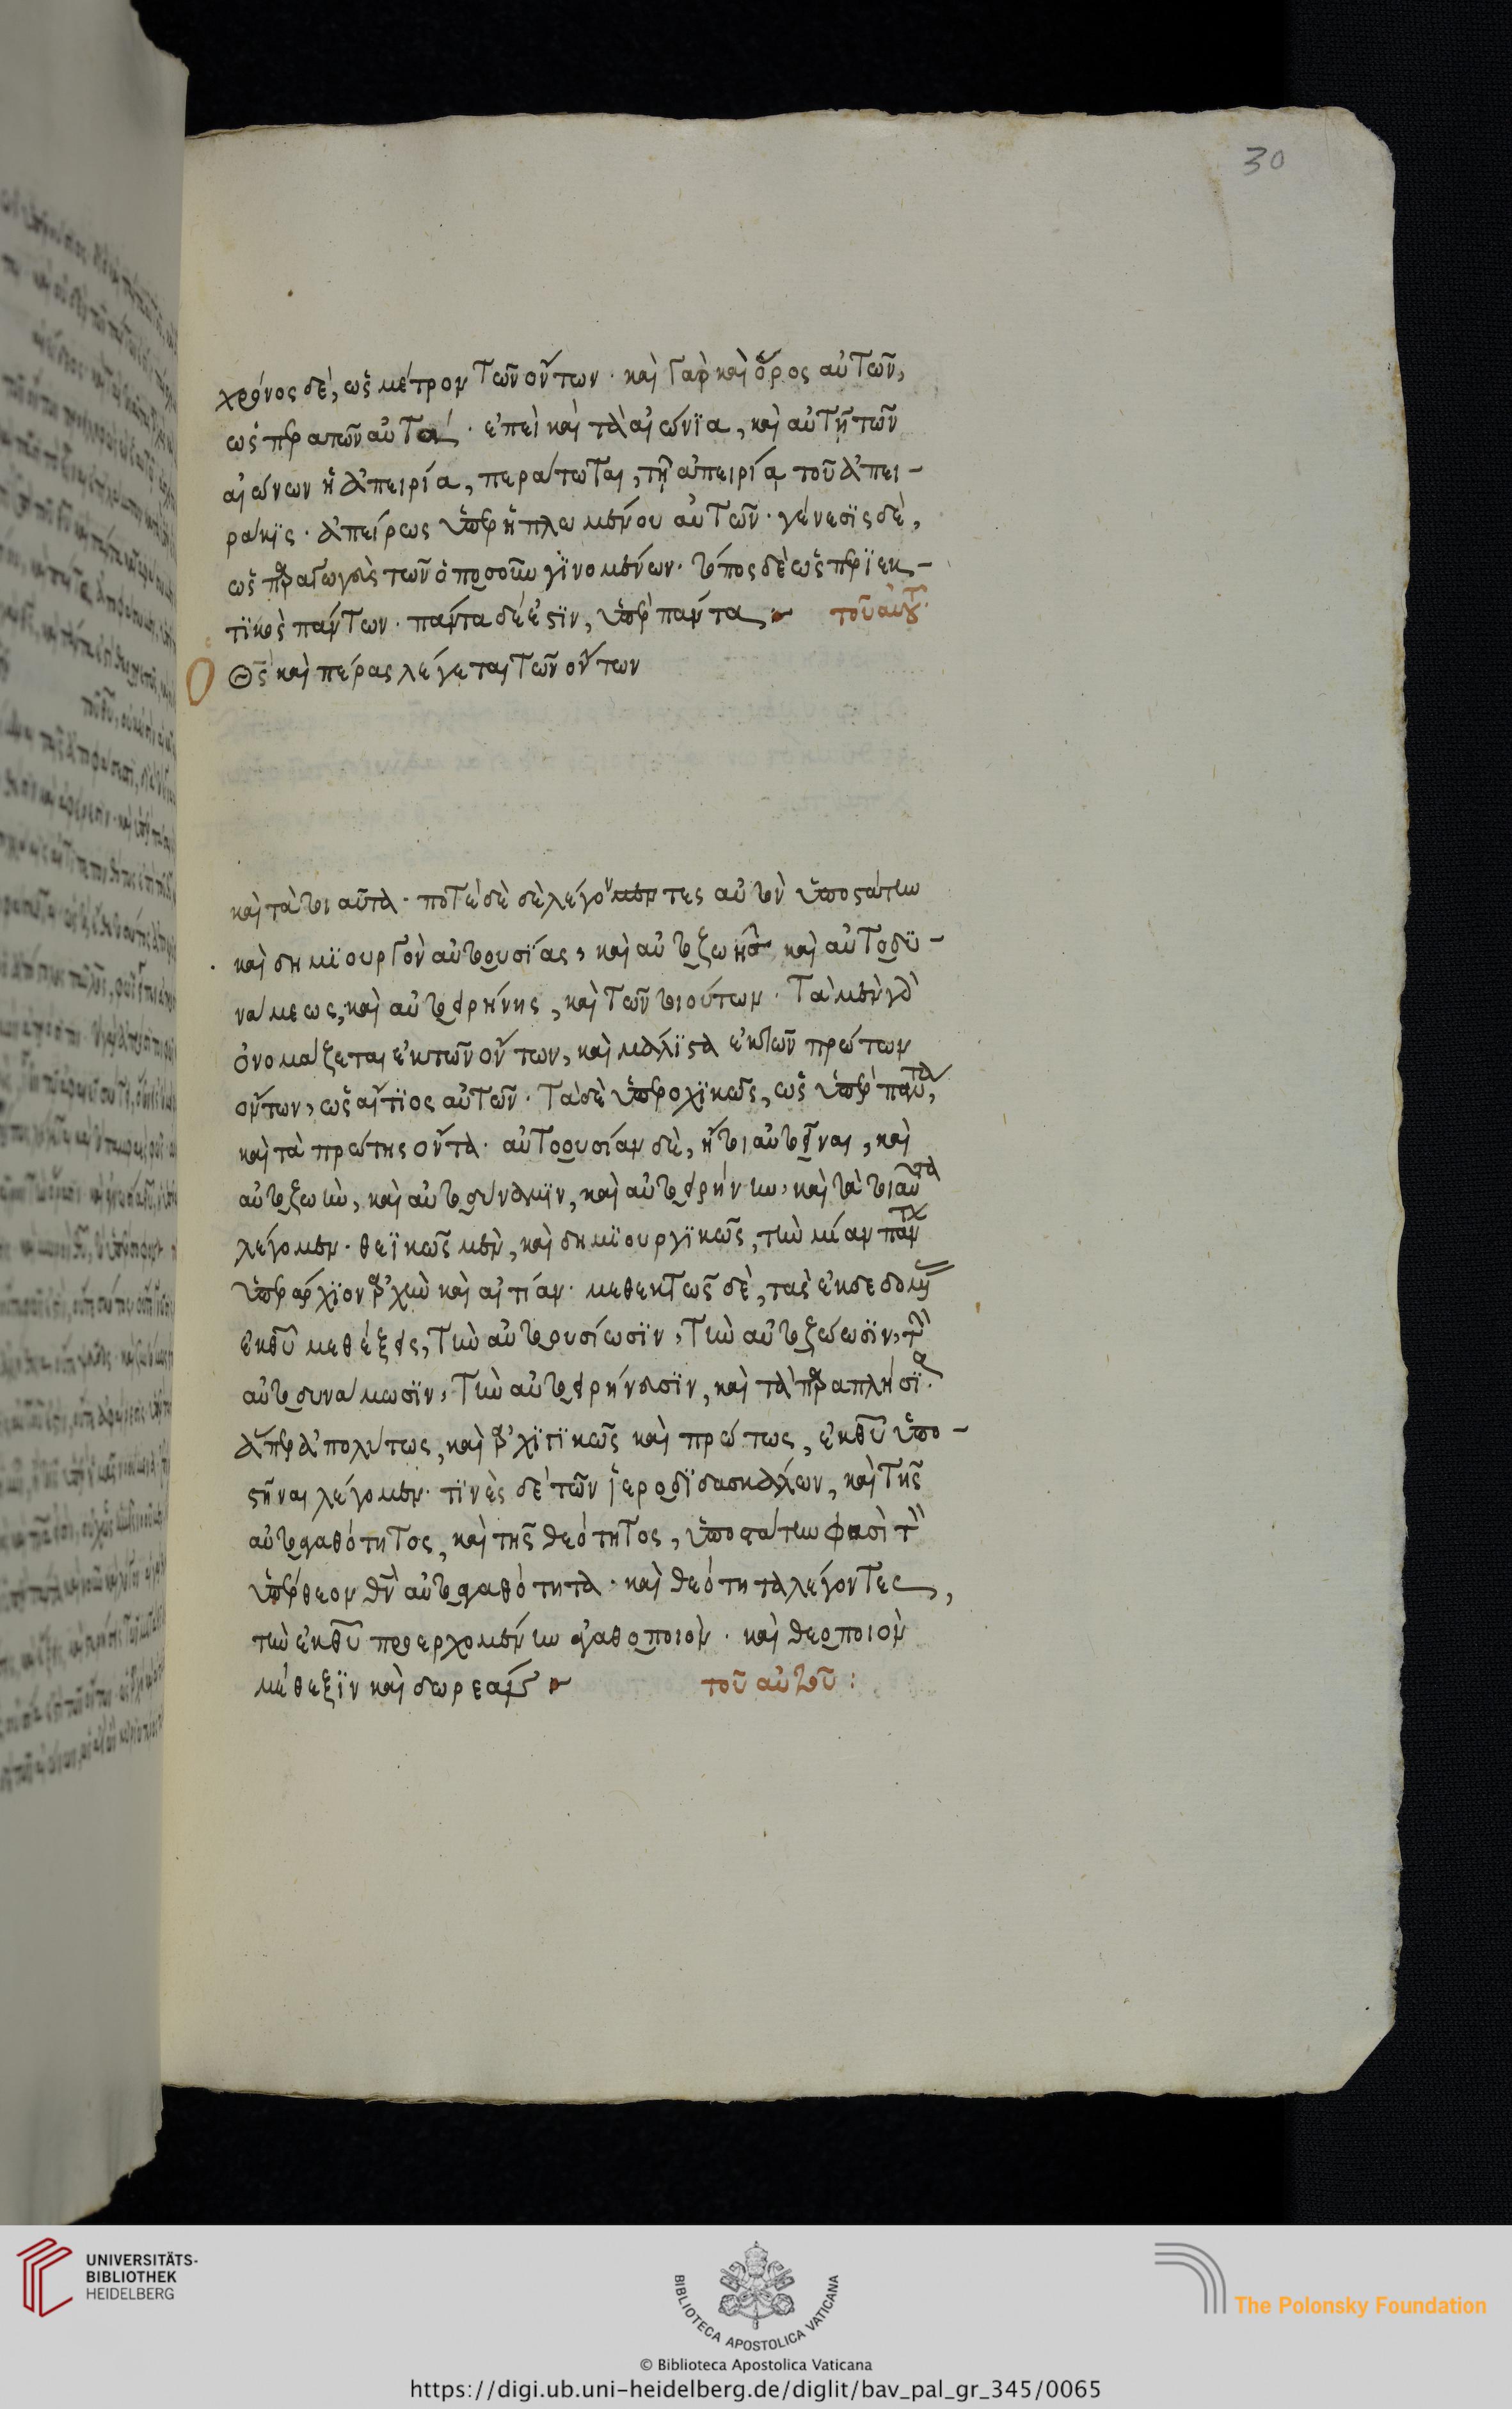 30
χρόνος δὲ, ὡς μέτρον τῶν ὄντων · καὶ γὰρ καὶ ὅρος αὐτῶν,
ὡς περατῶν αὐτά · ἐπεὶ καὶ τὰ αἰώνϊα, καὶ αὐτὴ τῶν
αἰώνων ἡ ἀπειρία, περάτωται, τῇ ἀπειρίᾳ τοῦ ἀπει-
ράκϊς · ἀπείρως ὑπερηπλωμένου αὐτῶν · γένεσϊς δὲ,
ὡς παραγωγὸς τῶν ὁπωσοῦν γϊνομένων · τόπος δὲ ὡς περϊεκ-
τϊκὸς πάντων · πάντα δέ ἐστϊν, ὑπὲρ πάντα, τοῦ αὐτοῦ
Ὁ Θς καὶ πέρας λέγεται τῶν ὄντων
καὶ τὰ τοιαῦτα · ποτὲ δὲ δὲ λέγοντες αὐτὸν ὑποστάτην
καὶ δημϊουργὸν αὐτοουσίας, καὶ αὐτοζωῆς καὶ αὐτοδυ-
νάμεως, καὶ αὐτοειρήνης, καὶ τῶν τοιούτων · Τὰ μὲν γὰρ
ὀνομάζεται ἐκ τῶν ὄντων, καὶ μάλϊστα ἐκ τῶν πρώτων
ὄντων, ὡς αἴτϊος αὐτῶν · Τὰ δὲ ὑπεροχϊκῶς, ὡς ὑπὲρ παντα,
καὶ τὰ πρώτης ὄντα · αὐτοουσίαν δὲ, ἤτοι αὐτοεῖναι, καὶ
αὐτοζωὴν, καὶ αὐτοδύναμϊν, καὶ αὐτοειρήνην, καὶ τὰ τοιαῦτα
λέγομεν · θεϊκῶς μὲν, καὶ δημϊουργϊκῶς, τὴν μίαν παντων
ὑπεράρχϊον ἀρχὴν καὶ αἰτίαν · μεθεκτῶς δὲ, τὰς ἐκδεδομένας
ἐκ Θυ μεθέξεις, Τὴν αὐτοουσίωσϊν, Τὴν αὐτοζώωσϊν, τὴν
αὐτοδυνάμωσϊν, Τὴν αὐτοειρήνωσϊν, καὶ τὰ παραπλήσϊα.
ἅπερ ἀπολύτως, καὶ ἀρχϊτϊκῶς καὶ πρώτως, ἐκ Θυ ὑπο-
στῆναι λέγομεν · τϊνὲς δὲ τῶν ἱεροδϊδασκάλων, καὶ τῆς
αὐτοαγαθότητος, καὶ τῆς θεότητος, ὑποστάτην φασὶ τὸν
ὑπέρθεον θν αὐτοαγαθότητα · καὶ θεότητα λέγοντες,
τὴν ἐκ Θυ προερχομένην ἀγαθοποιὸν · καὶ θεοποιὸν
μέθεξϊν καὶ δωρεάν τοῦ αὐτοῦ :
UNIVERSITÄTS-
BIBLIOTHEK
HEIDELBERG
BIBLIOTECA APOSTOLICA VATICANA
The Polonsky Foundation
© Biblioteca Apostolica Vaticana
https://digi.ub.uni-heidelberg.de/diglit/bav_pal_gr_345/0065